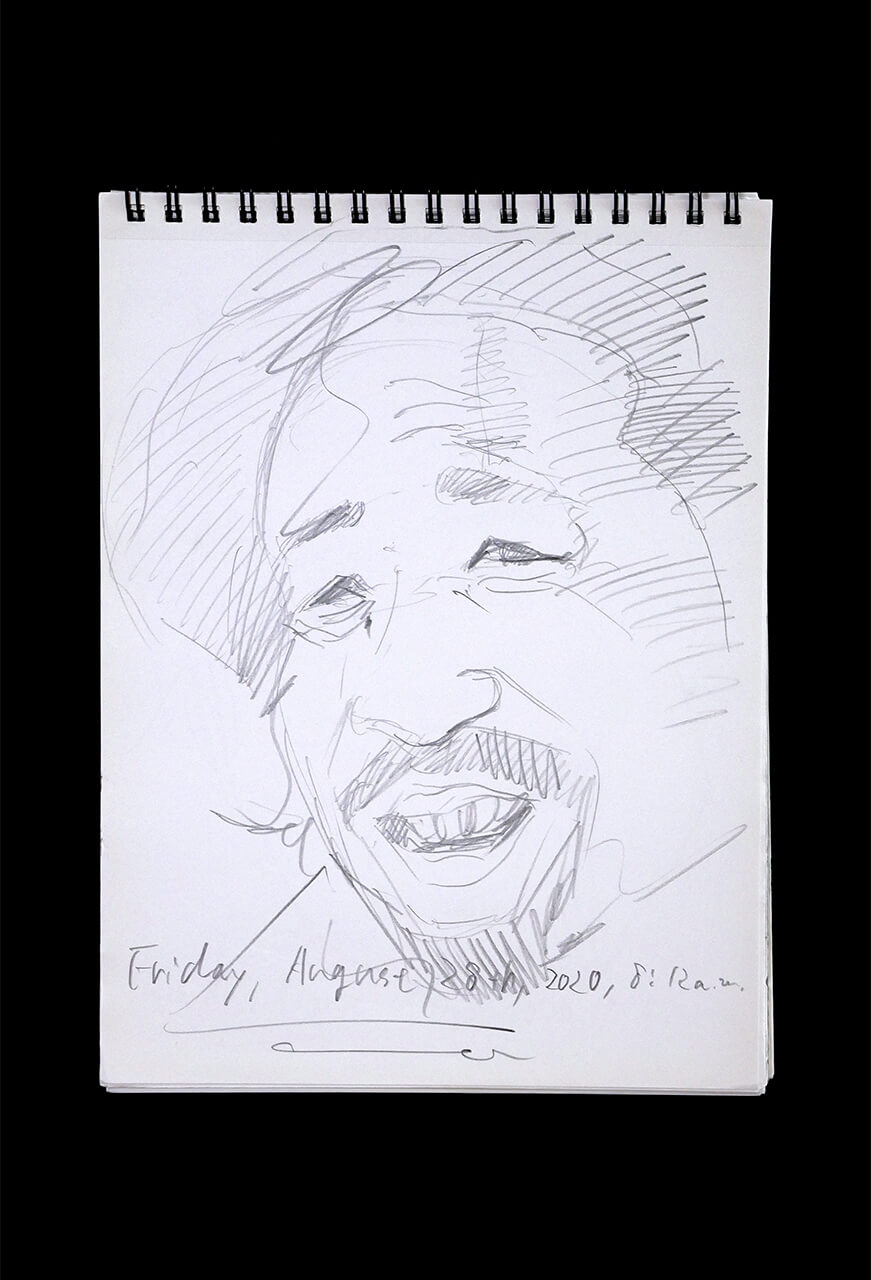 Friday, August 28th, 2020, 8:12a.m.